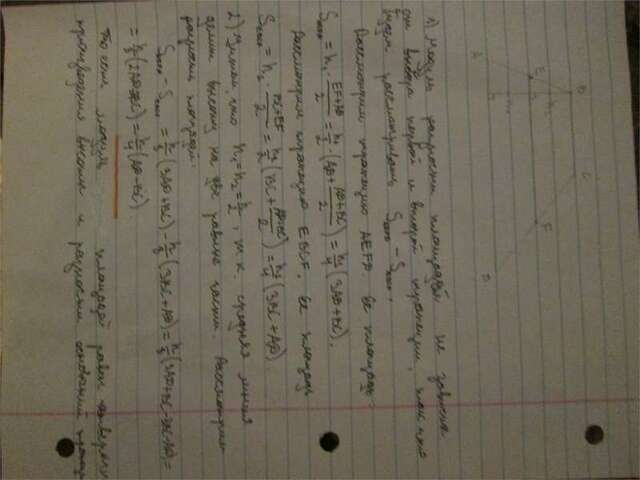 B C
h₂
E F
h₁
A D
1) Модуль разности площадей не зависит
от выбора первой и второй трапеции, так что
будем рассматривать S - S.
Рассмотрим трапецию AEFD. Её площадь:
S = h₁ · (EF+AD)/2 = h₁/2 · (AD + (AD+BC)/2) = h₁/4 (3AD+BC).
Рассмотрим трапецию EBCF. Её площадь
S = h₂ · (BC+EF)/2 = h₂/2 (BC + (AD+BC)/2) = h₂/4 (3BC+AD)
2) Учтём, что h₁=h₂=h/2, т.к. средняя линия
делит высоту на две равные части. Рассмотрим
разность площадей:
S - S = h/8 (3AD+BC) - h/8 (3BC+AD) = h/8 (3AD+BC-3BC-AD) =
= h/8 (2AD-2BC) = h/4 (AD-BC)
То есть модуль площадей равен четверти
произведения высоты и разности оснований